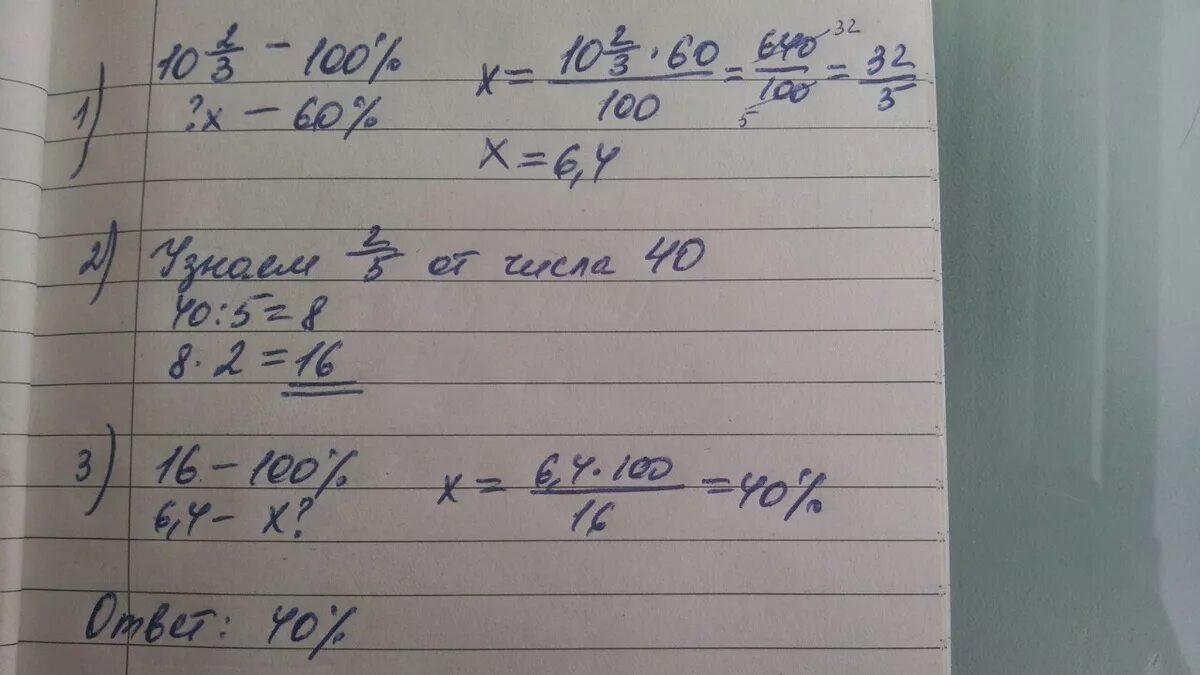 1) 10 2/3 - 100% x = (10 2/3 · 60)/100 = 640/100 = 32/5
?x - 60% 32 5
x = 6,4
2) Узнаем 2/5 от числа 40
40:5=8
8·2=16
3) 16 - 100% x = (6,4·100)/16 = 40%
6,4 - x?
Ответ: 40%